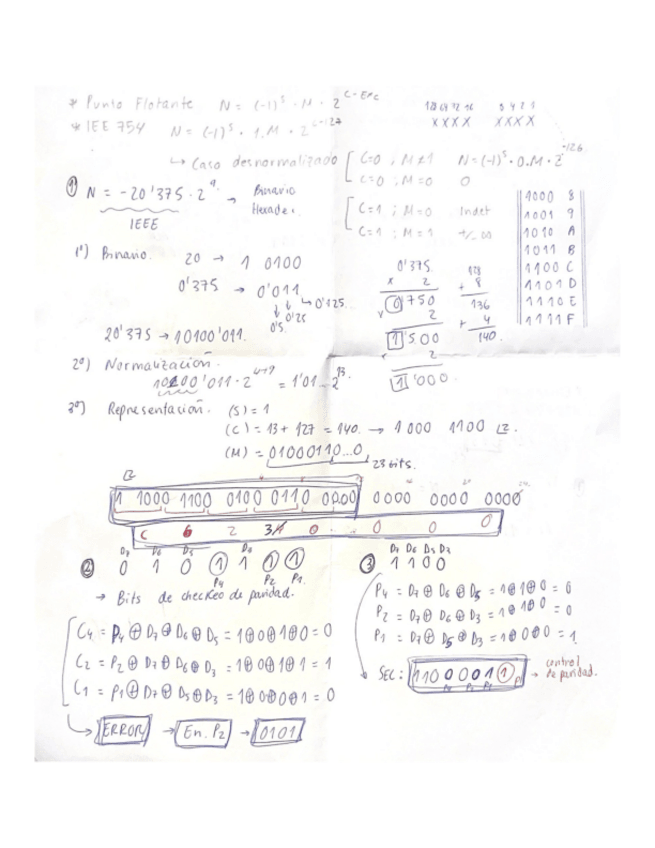 * Punto Flotante N = (-1)^S · M · 2^(C-Exc
* IEE 754 N = (-1)^S · 1.M · 2^(C-127
128 64 32 16 8 4 2 1
XXXX XXXX
↳ Caso desnormalizado [ C=0 ; M≠1 N=(-1)^S · 0.M · 2^-126
C=0 ; M=0 0
[ C=1 ; M=0 Indet
C=1 ; M=1 +/- ∞
① N = -20'375 · 2^9 → Binario
Hexade.
IEEE
1000 8
1001 9
1010 A
1011 B
1100 C
1101 D
1110 E
1111 F
1º) Binario. 20 → 1 0100
0'375 → 0'011
↓ ↓ ↳ 0'125
0'5 0'25
20'375 → 10100'011.
0'375
x 2
0'750
x 2
1'500
2
1'000.
128
+ 8
136
+ 4
140.
2º) Normalización.
10100'011 · 2^4+9 = 1'01...2^13.
3º) Representación. (S) = 1
(C) = 13 + 127 = 140. → 1000 1100
(M) = 01000110...0
23 bits.
1 1000 1100 0100 0110 0000 0000 0000 0000
C 6 2 3 0 0 0 0
② D7 D6 D5 D3
0 1 0 ① 1 ① ①
P4 P2 P1
→ Bits de checkeo de paridad.
[ C4 = P4 ⊕ D7 ⊕ D6 ⊕ D5 = 1⊕0⊕1⊕0 = 0
C2 = P2 ⊕ D7 ⊕ D6 ⊕ D3 = 1⊕0⊕1⊕1 = 1
C1 = P1 ⊕ D7 ⊕ D5 ⊕ D3 = 1⊕0⊕0⊕1 = 0
↳ ERROR → En. P2 → 0101
③ D7 D6 D5 D3
1 1 0 0
P4 = D7 ⊕ D6 ⊕ D5 = 1⊕1⊕0 = 0
P2 = D7 ⊕ D6 ⊕ D3 = 1⊕1⊕0 = 0
P1 = D7 ⊕ D5 ⊕ D3 = 1⊕0⊕0 = 1
SEC: 1100001① P1 → control
de paridad.